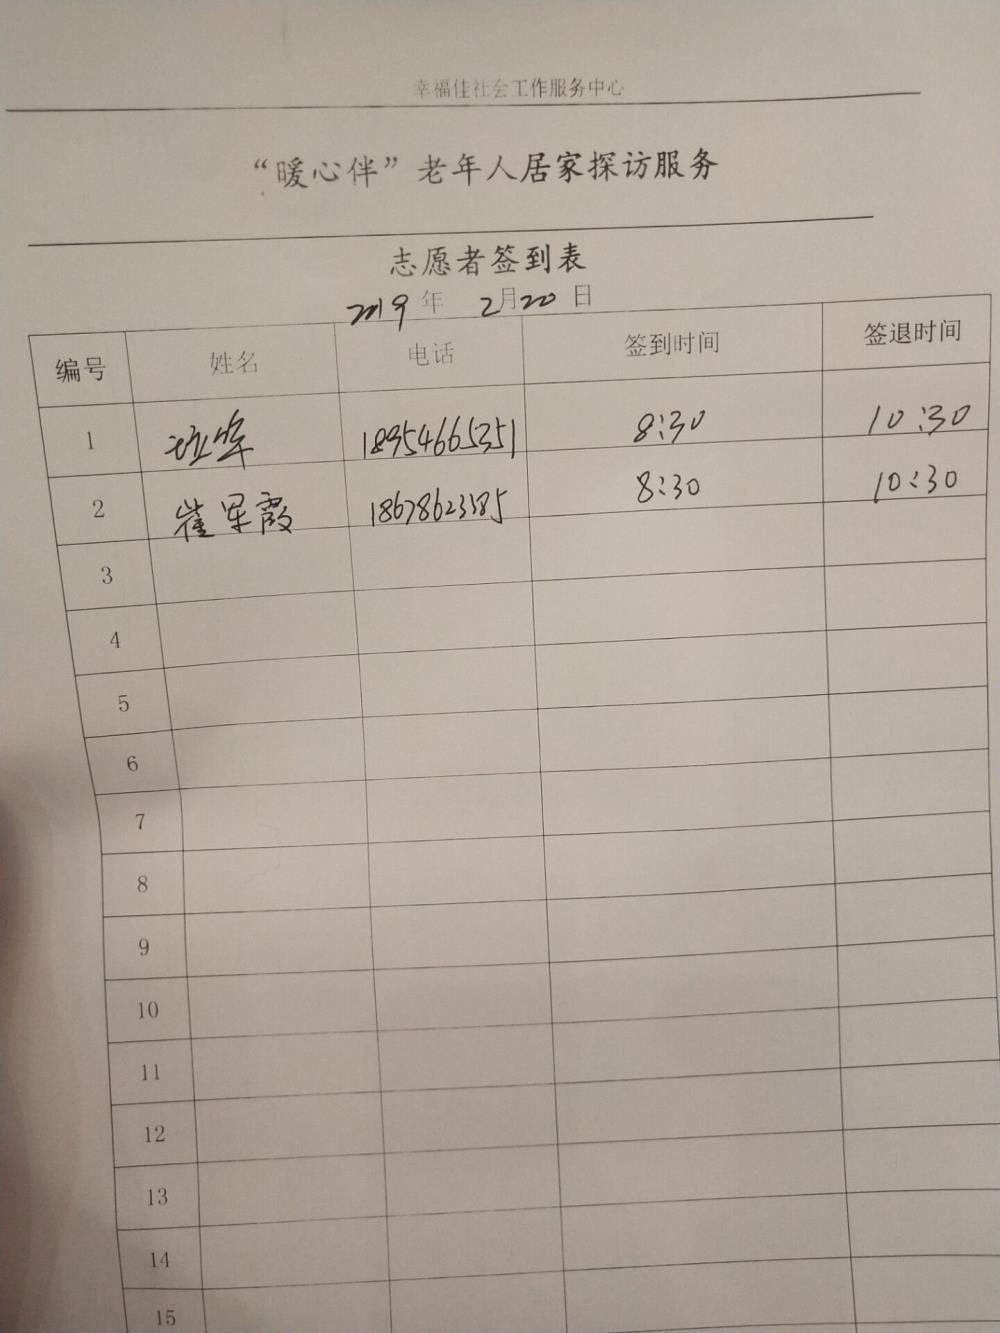 幸福佳社会工作服务中心
“暖心伴”老年人居家探访服务
志愿者签到表
2019年 2月20日
编号 姓名 电话 签到时间 签退时间
1 18954665351 8:30 10:30
2 崔军霞 18678623185 8:30 10:30
3
4
5
6
7
8
9
10
11
12
13
14
15